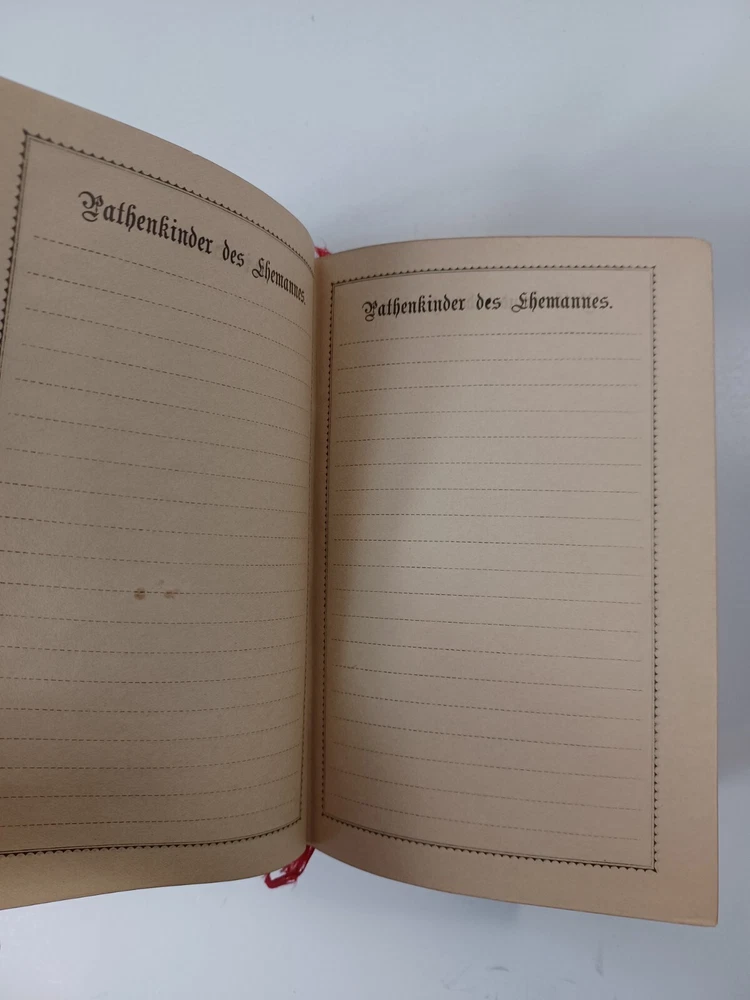 Pathenkinder des Ehemannes.
Pathenkinder des Ehemannes.